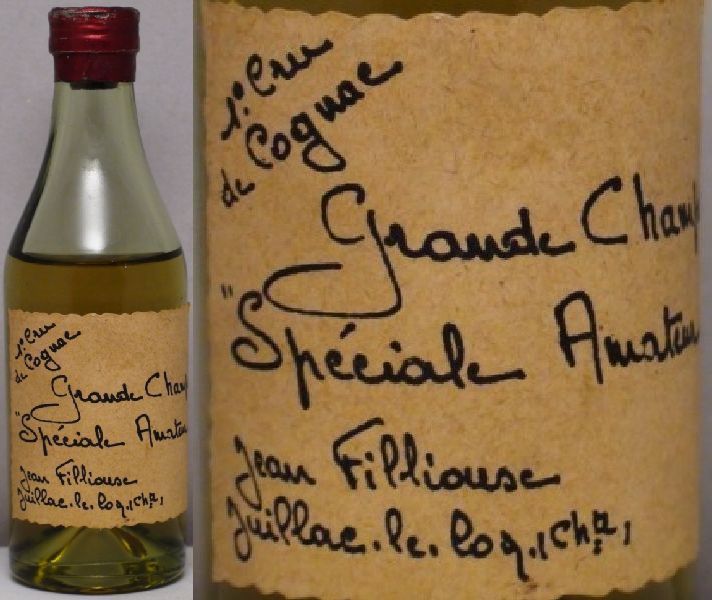 1º. Cru
de Cognac
Grande Cham
"Spéciale Amateu
Jean Fillioux
Juillac.le.Coq.
1º. Cru
de Cognac
Grande Cham
"Spéciale Amateu
Jean Fillioux
Juillac.le.Coq.